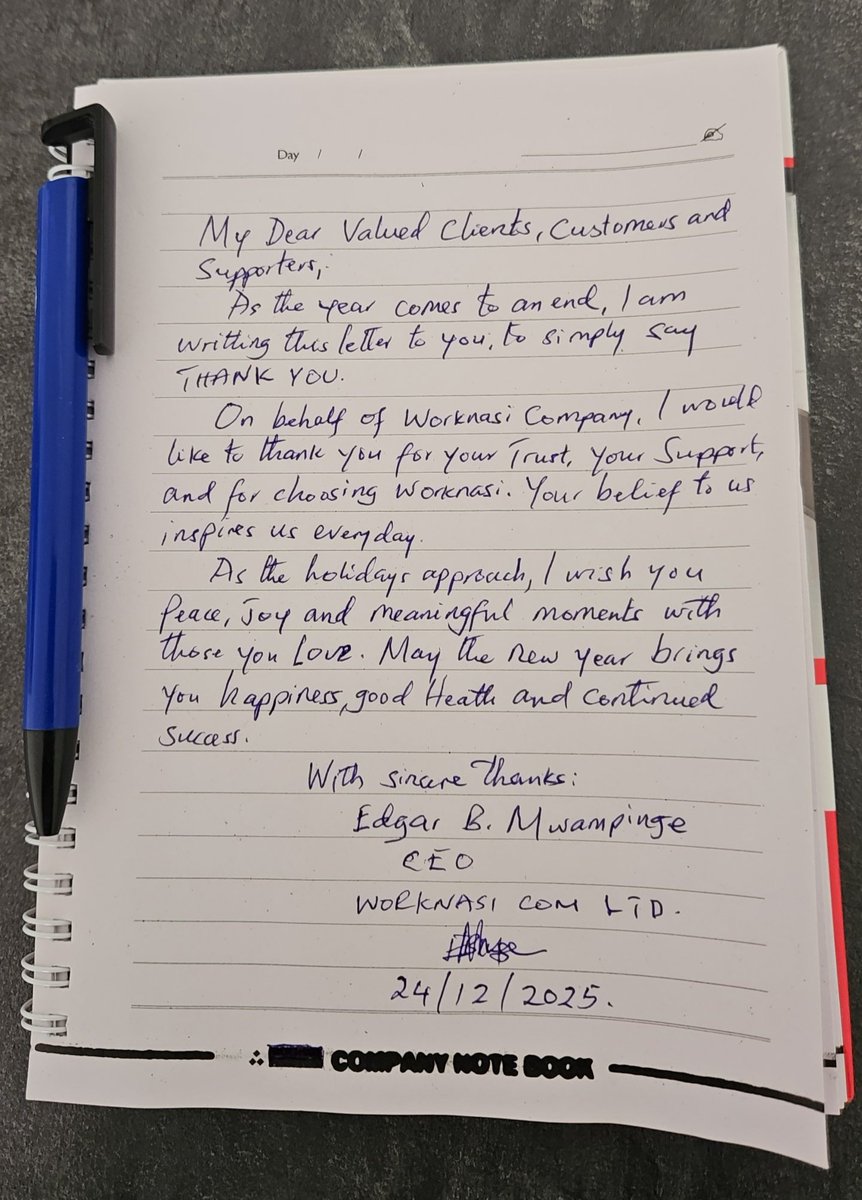 Day / /
My Dear Valued Clients, Customers and
Supporters,
As the year comes to an end, I am
writting this letter to you, to simply say
THANK YOU.
On behalf of Worknasi Company, I would
like to thank you for your Trust, your Support,
and for choosing Worknasi. Your belief to us
inspires us everyday.
As the holidays approach, I wish you
Peace, Joy and meaningful moments with
those you Love. May the new year brings
you happiness, good Heath and continued
success.
With sincere thanks:
Edgar B. Mwampinge
CEO
WORKNASI COM LTD.
24/12/2025.
COMPANY NOTE BOOK